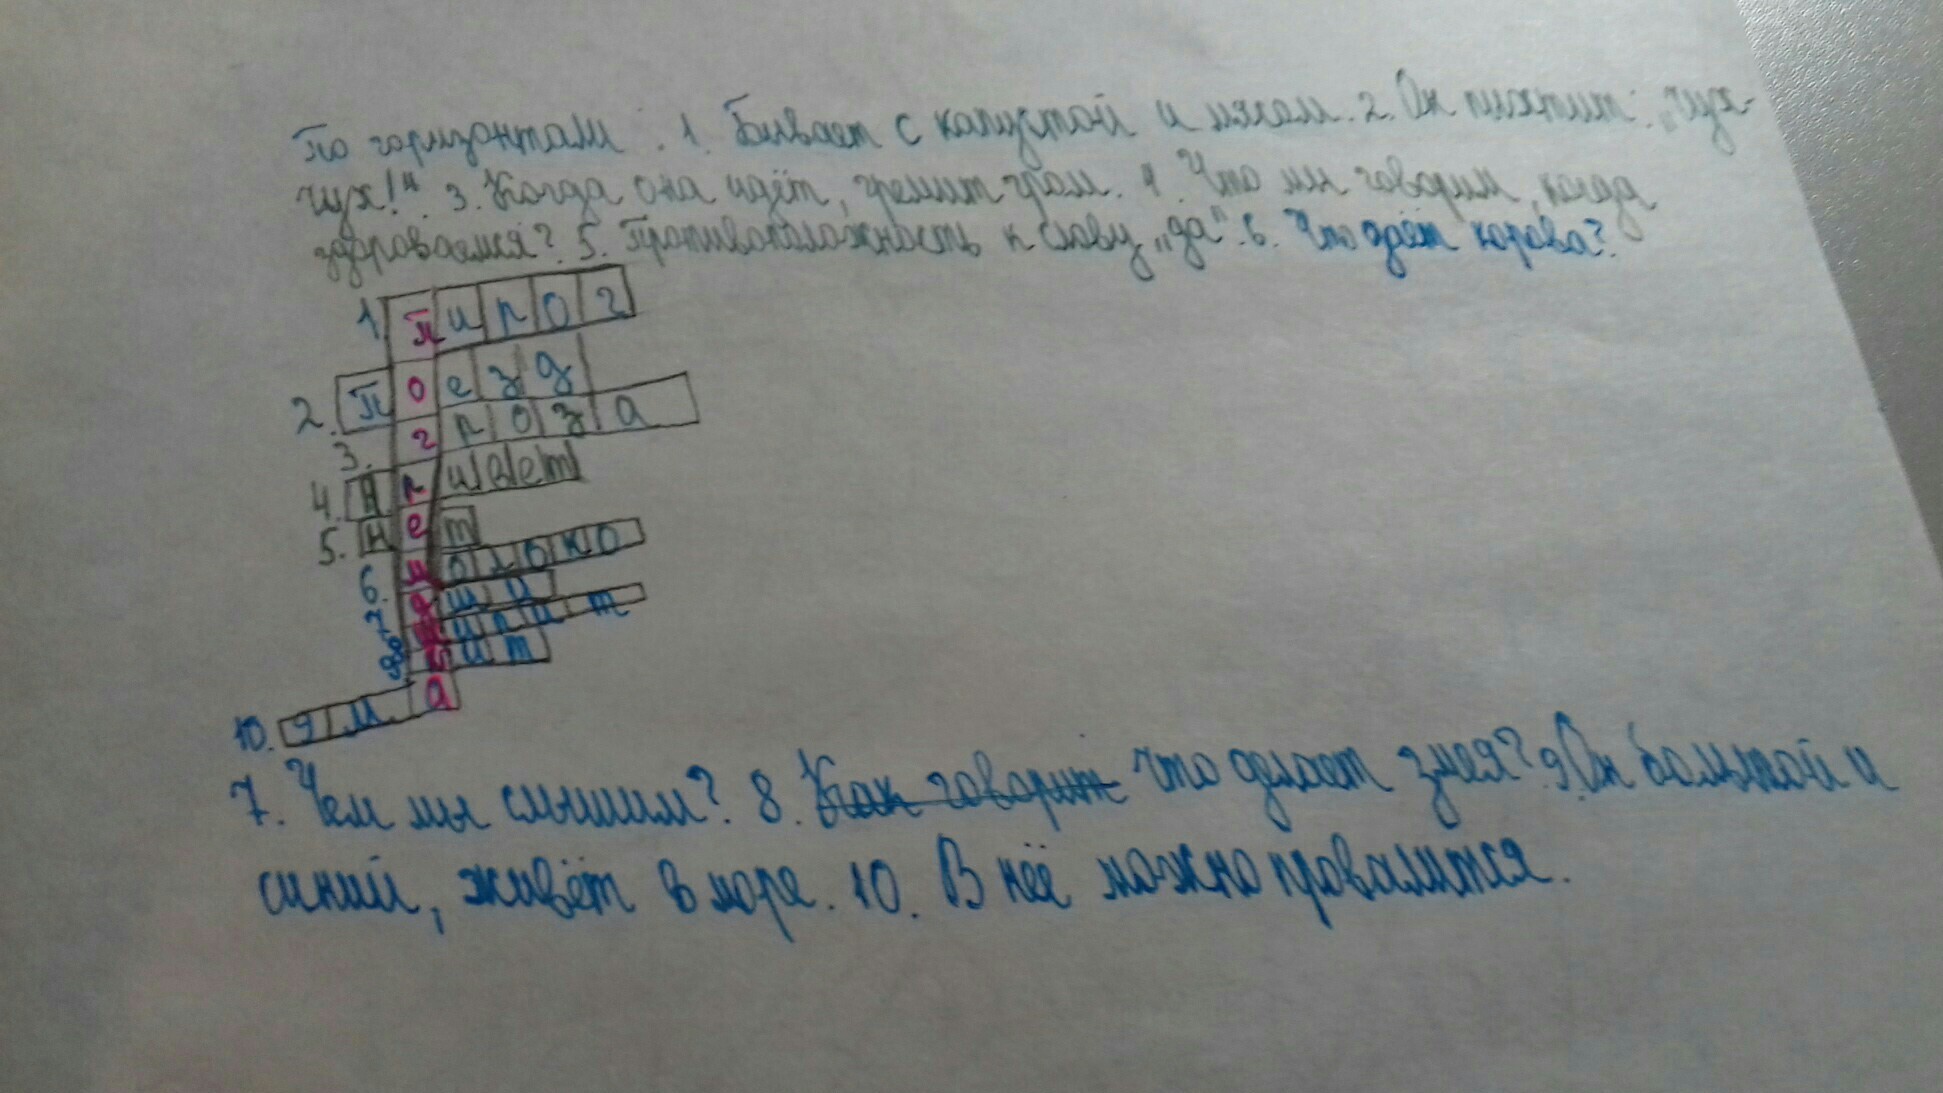 По горизонтали: 1. Бывает с капустой и мясом. 2. Он пыхтит: „Чух-
чух!“. 3. Когда она идёт, гремит гром. 4. Что мы говорим, когда
здороваемся? 5. Противоположность к слову „да“. 6. Что даёт корова?
1. пирог
2. поезд
3. гроза
4. привет
5. нет
6. молоко
7. уши
8. шипит
9. кит
10. яма
7. Чем мы слышим? 8. Как говорит Что делает змея? 9. Он большой и
синий, живёт в море. 10. В неё можно провалится.